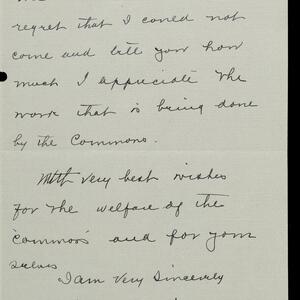 regret that I could not
come and tell you how
much I appreciate the
work that is being done
by the Commons.
With very best wishes
for the welfare of the
"Commons" and for your
selves
I am Very Sincerely